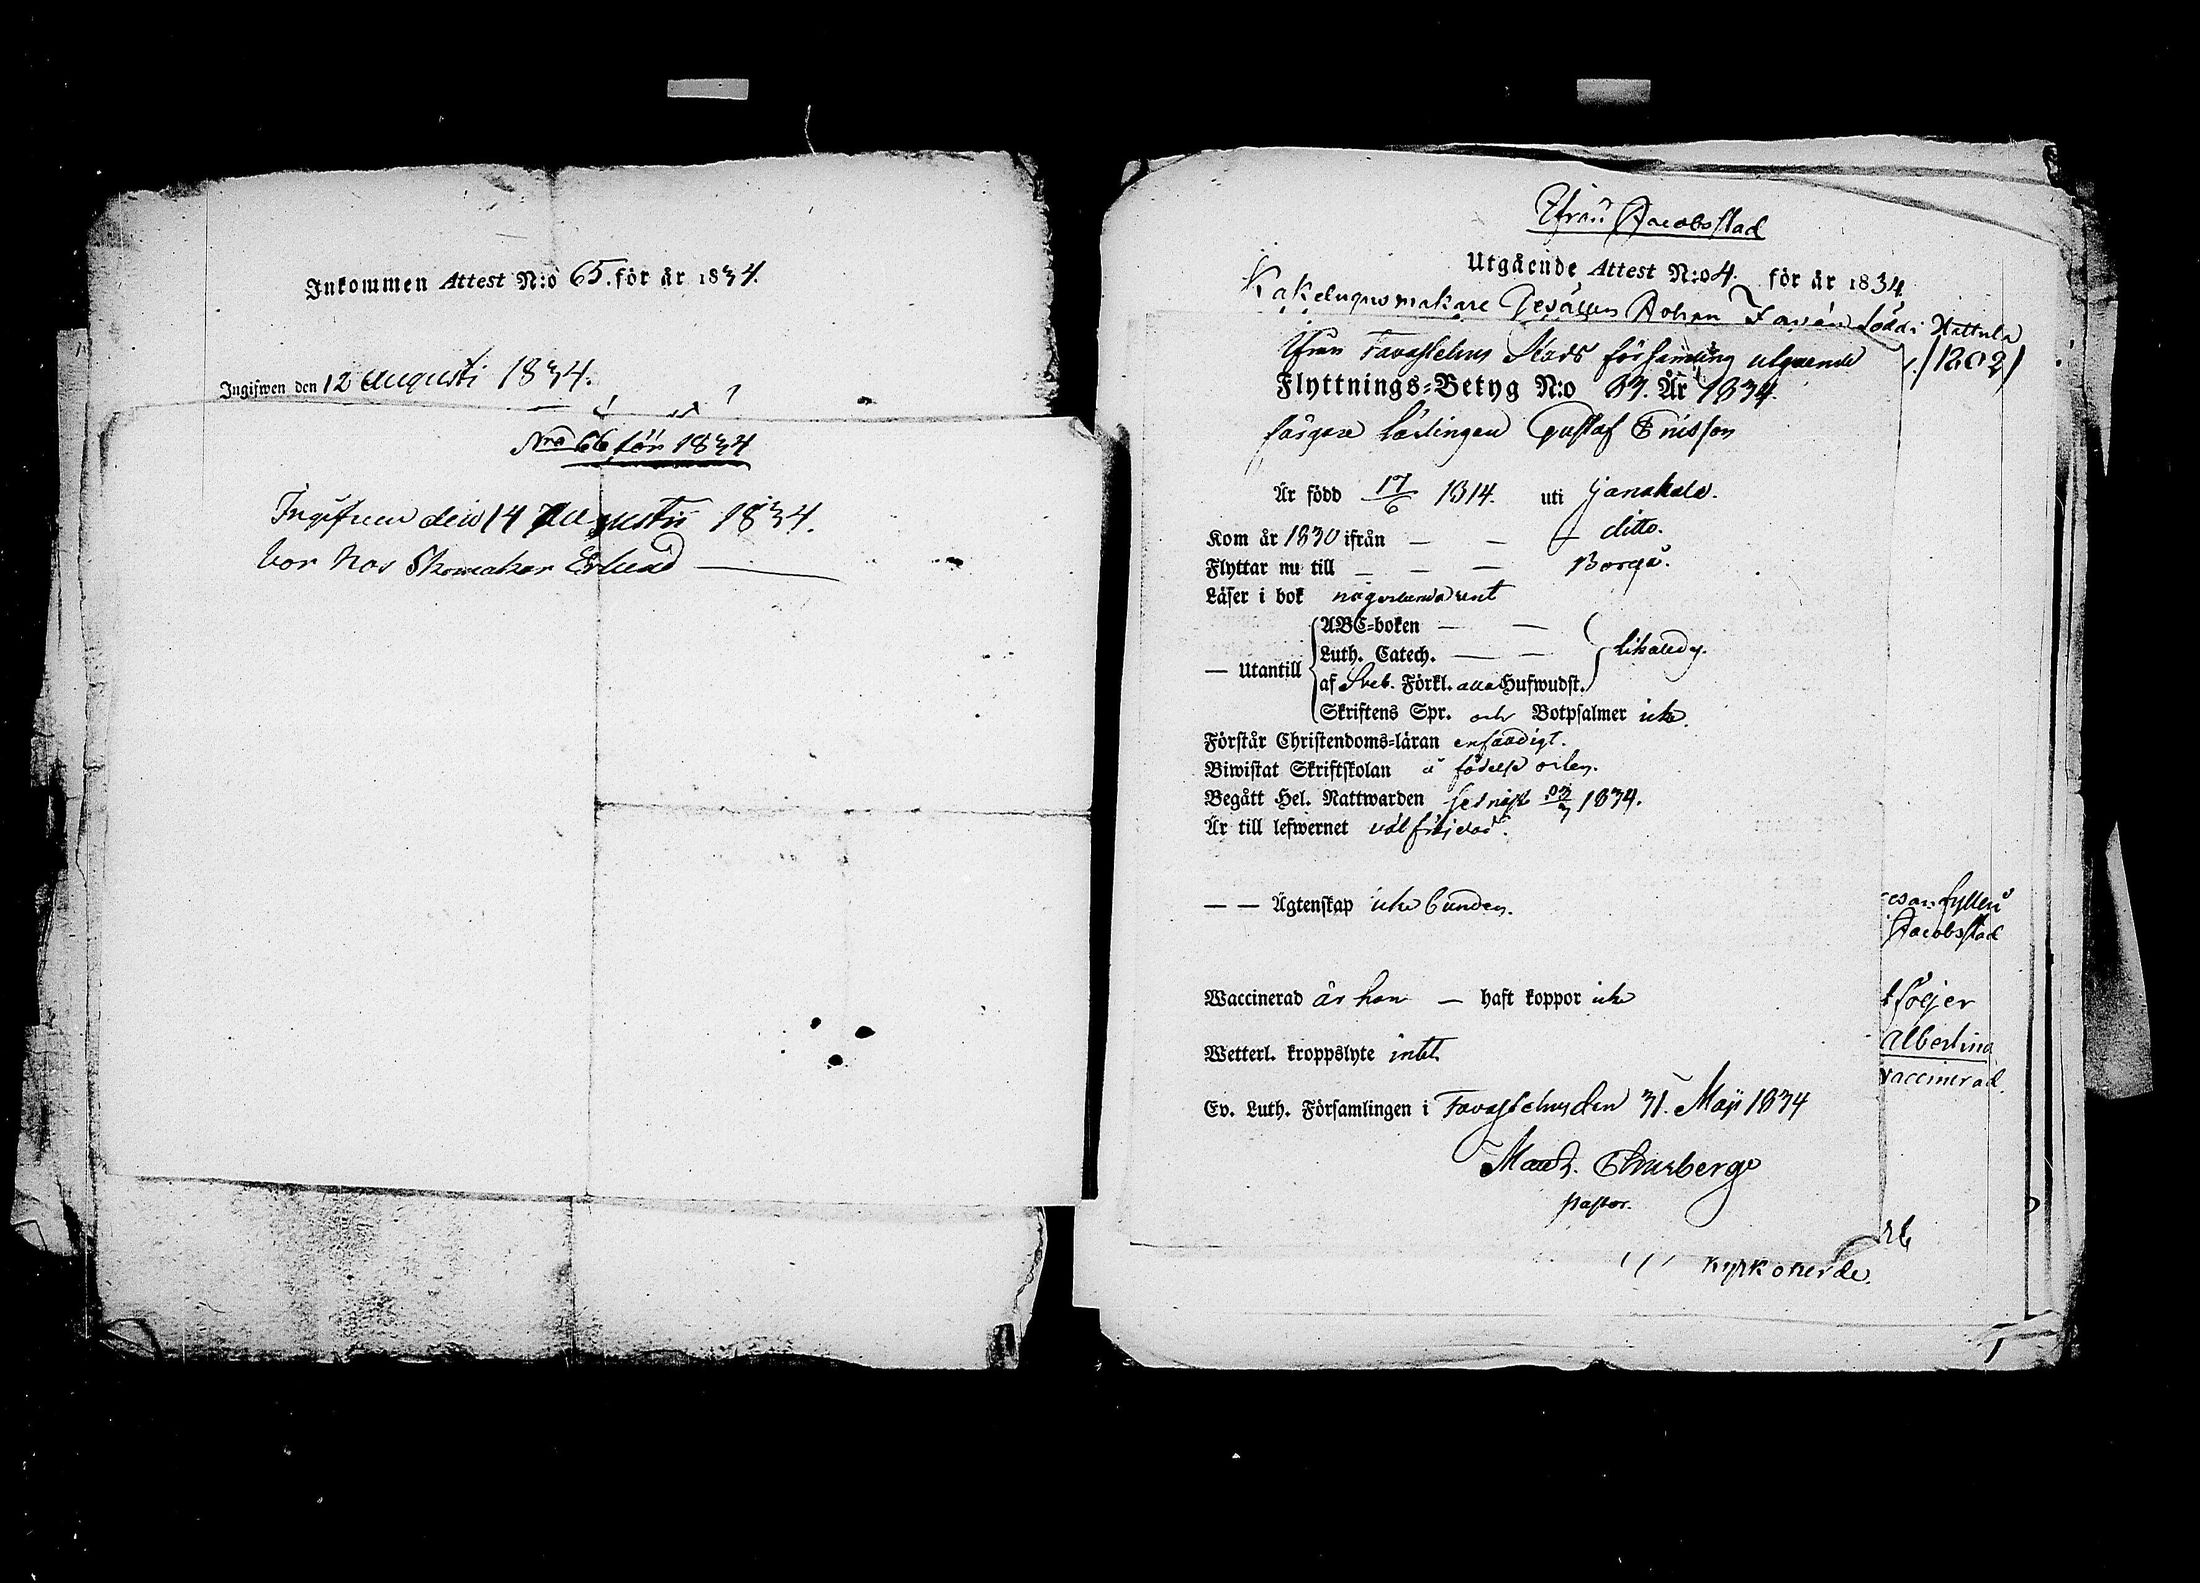 Inkommen Attest N:o 65. för år 1834.
Ingifwen den 12 Augusti 1834.
Nro 66 för 1834
Ingifven den 14 Augusti 1834.
bor hos Skomakar Erlund
Ifrån Jacobstad
Utgående Attest N:o 4. för år 1834
Kakelugnsmakare Gesällen Johan född i Hattula
1802
Ifrån Tavastehus Stads församling utgående
Flyttnings-Betyg N:o 37. År 1834.
färgare Lärlingen Gustaf Ericsson
Är född 17/6 1814. uti Janakala.
Kom år 1830 ifrån — — ditto.
Flyttar nu till — — — Borgå.
Läser i bok någorlunda rent
ABC-boken — —
Luth. Catech. — — likaledes.
— Utantill
af Sveb. Förkl. alla Hufwudst.
Skriftens Spr. och Botpsalmer icke.
Förstår Christendoms-läran enfaldigt.
Biwistat Skriftskolan å födelse orten.
Begått Hel. Nattwarden sednast 1834.
Är till lefwernet väl frejdad.
— — Ägtenskap icke bunden.
Jacobstad
Waccinerad är han — haft koppor icke
följer
Albertina
Wetterl. kroppslyte intet
vaccinerad.
Ev. Luth. Församlingen i Tavastehus den 31. Maji 1834
pastor.
Kyrkoherde.